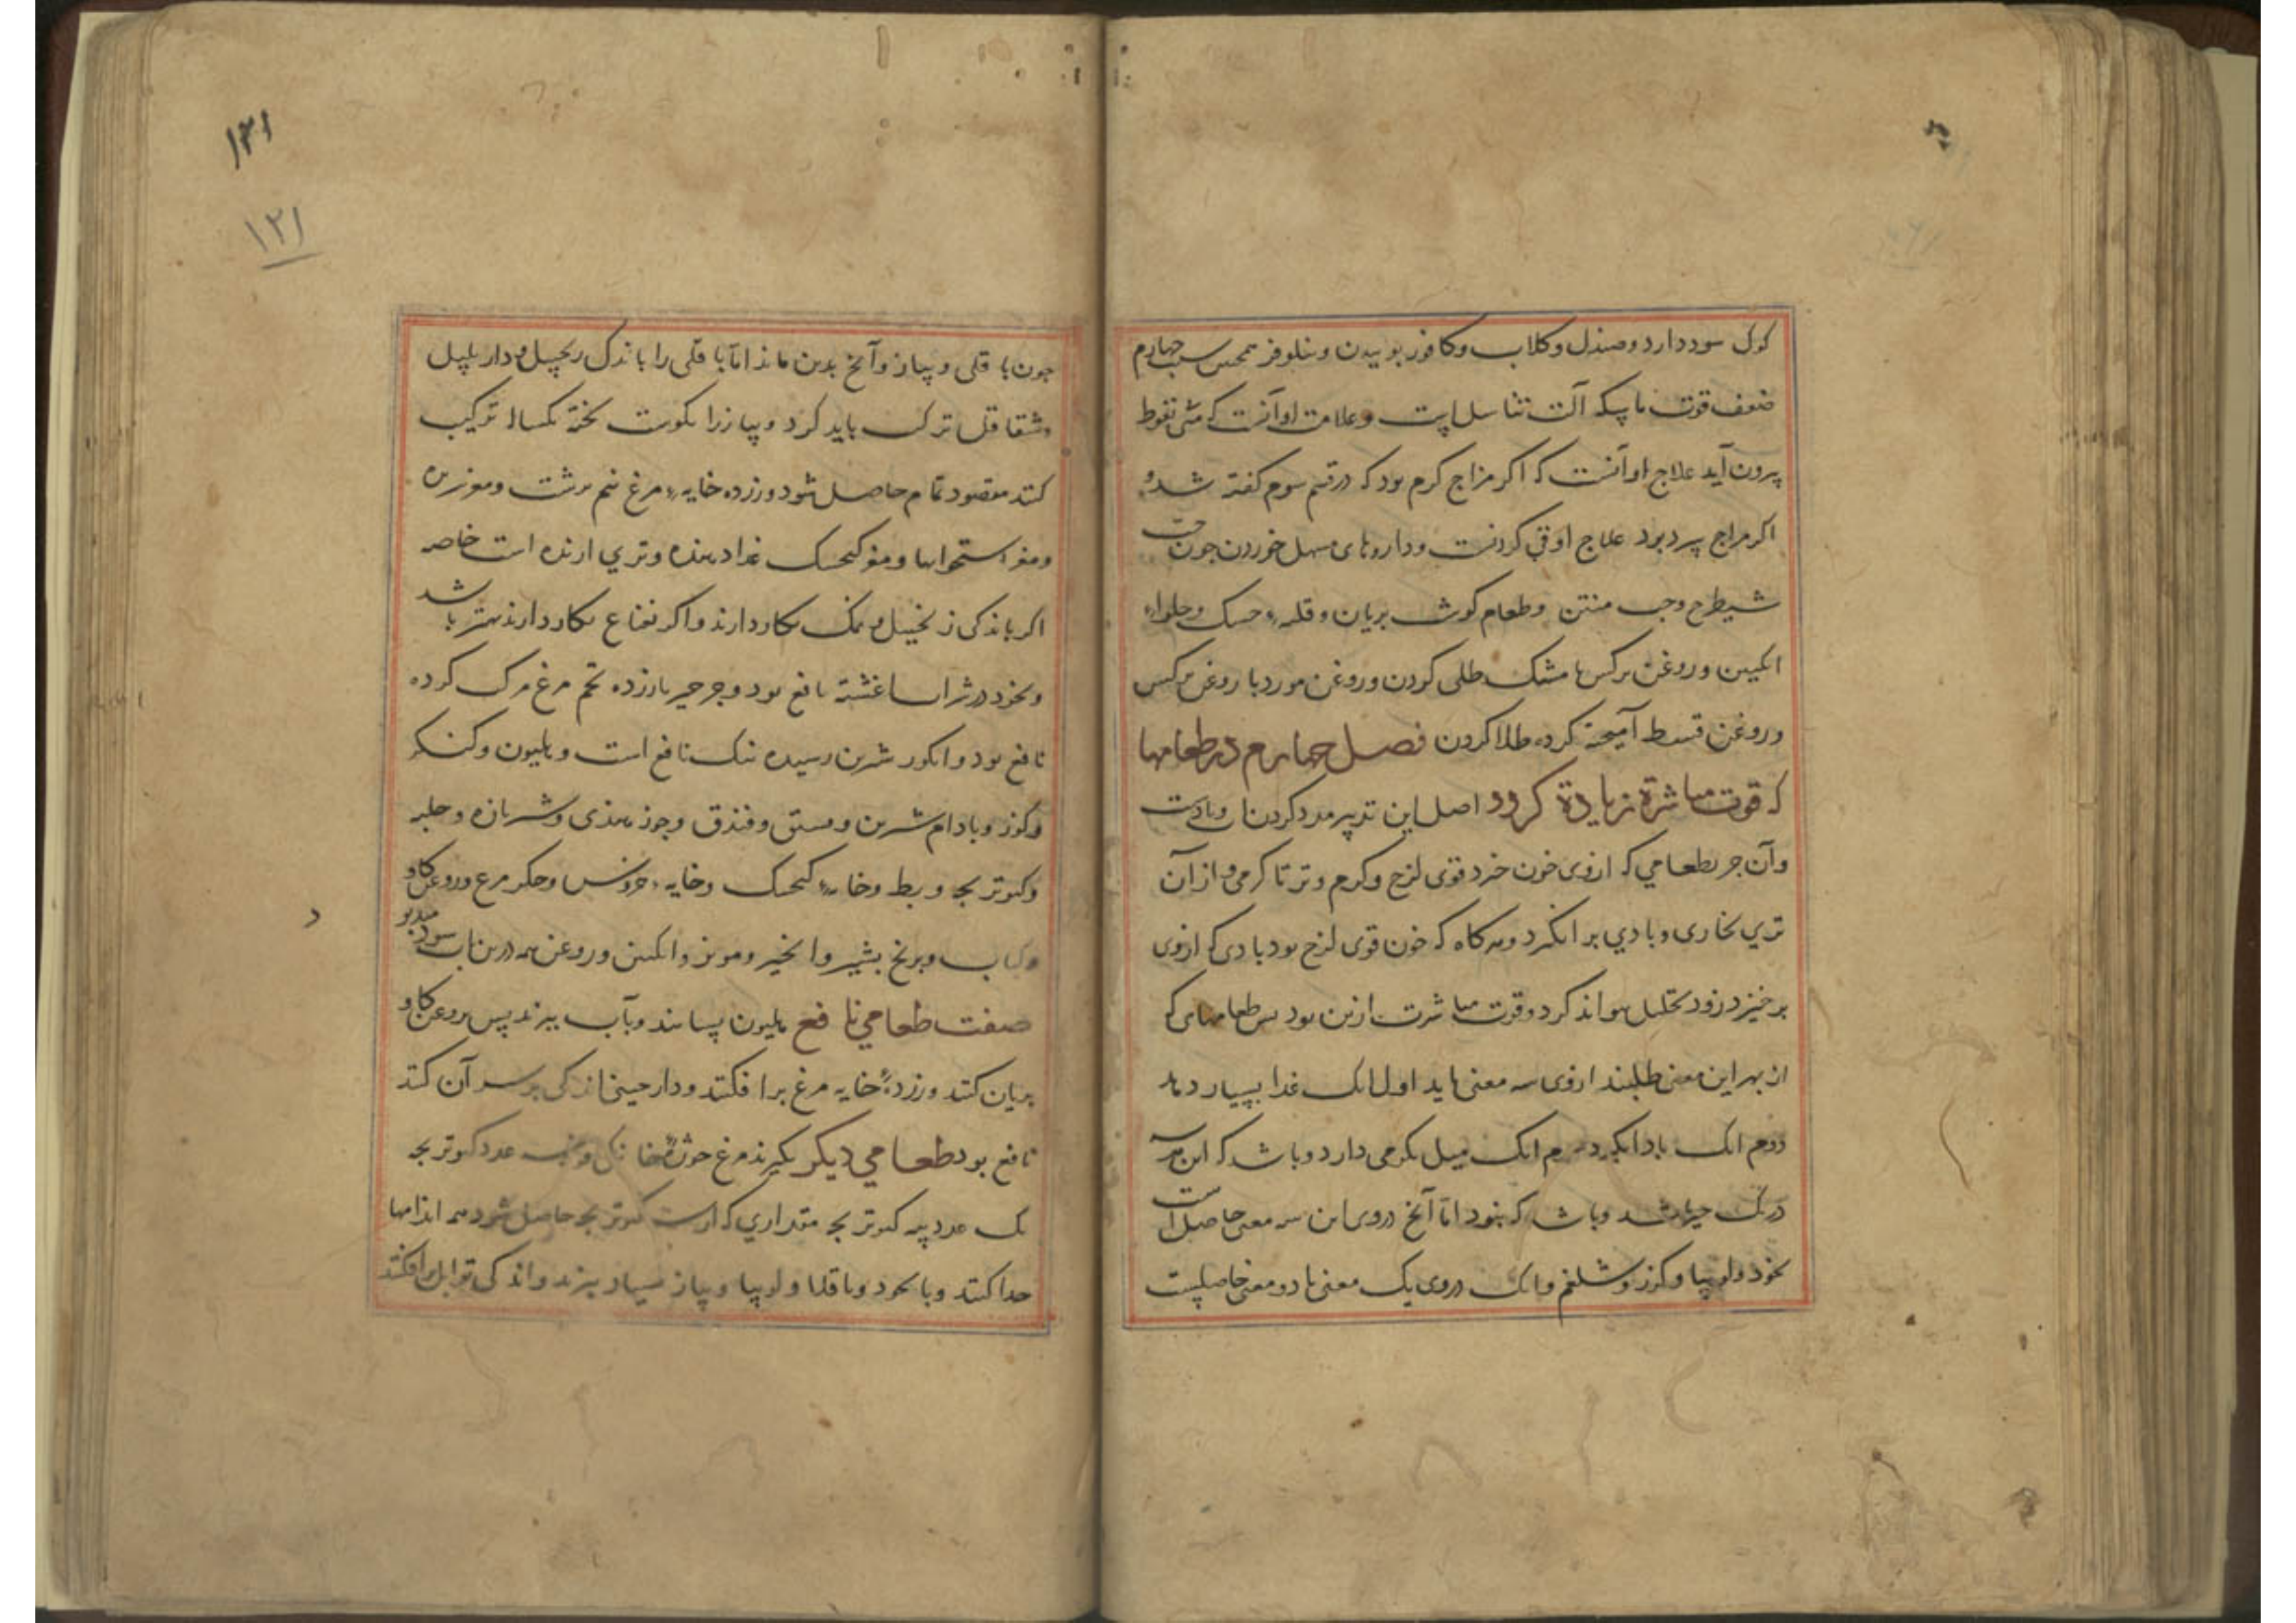 کول سود دارد و صندل و کلاب و کافور بوییدن و نیلوفر همچنین سبب چهارم
ضعف قوت ماسکه آلت تناسل است و علامت او آنست که منی نقوط
بیرون آید علاج او آنست که اکر مزاج کرم بود که در قسم سوم کفته شد و
اکر مزاج سرد بود علاج او قی کردنست و داروهای مسهل خوردن جون حب
شیطرج و حب منتن و طعام کوشت بریان و قلیه خسک و حلواء
انکبین و روغن نرکس با مشک طلی کردن و روغن مورد با روغن نرکس
و روغن قسط آمیخته کرده طلا کردن فصل جهارم در طعامها
که قوت مباشرة زیادة کرود اصل این تدبیر مدد کردن
وآن جز بطعامی که ازوی خون خزد قوی لزج و کرم و تر تا کرمی از آن
تری بخاری و بادی بر انکیزد و هرکاه که خون قوی لزج بود بادی که ازوی
برخیزد زود تحلیل نتواند کرد و قوت مباشرت ازین بود بس طعامهای که
از بهر این معنی طلبند ازوی سه معنی باید اول انک غذا بسیار دهد
دوم انک باد انکیزد سوم انک میل بکرمی دارد و باشد که این هر سه
در یک جیز باشد و باشد که نبود اما آنچ دروی این سه معنی حاصل است
نخود و لوبیا و کزر و شلغم و انک دروی یک معنی یا دو معنی حاصلست
۱۲۱
۱۲۱
جون باقلی و پیاز و آنخ بدین ماند اما باقلی را باندک زنجبیل و دار پلپل
و شقاقل ترکیب باید کرد و پیاز را بکوشت پخته یکساله ترکیب
کنند مقصود تمام حاصل شود و زرده خایهء مرغ نیم برشت و مغز سر
و مغز استخوانها و مغز کنجشک غذا دهنده و تری ارنده است خاصه
اکر باندکی زنجبیل و نمک بکار دارند و اکر نعناع بکار دارند بهتر باشد
و نخود در شراب اغشته نافع بود و جرجیر با زرده تخم مرغ مرکب کرده
نافع بود و انکور شیرین رسیده نیک نافع است و هلیون و کنکر
و کوز و بادام شیرین و فستق و فندق و جوز هندی و شیر تازه و حلبه
و کبوتر بچه و بط و خایهء کنجشک و خایهء خروس و جکر مرغ و روغن کاو
و کباب و برنج بشیر و انجیر و مویز و انکبین و روغن همه درین باب سود
صفت طعامی نافع هلیون بستانند و بآب بپزند پس بروغن کاو
بریان کنند و زردهء خایه مرغ برافکنند و دارچینی اندکی بر سر آن کنند
نافع بود طعامی دیکر بکیرند مرغ عدد کبوتر بچه
یک عدد پیه کبوتر بچه مقداری که از کبوتر بچه حاصل شود همه اندامها
جدا کنند و با نخود و باقلا و لوبیا و پیاز بسیار بپزند و اندکی توابل برافکنند